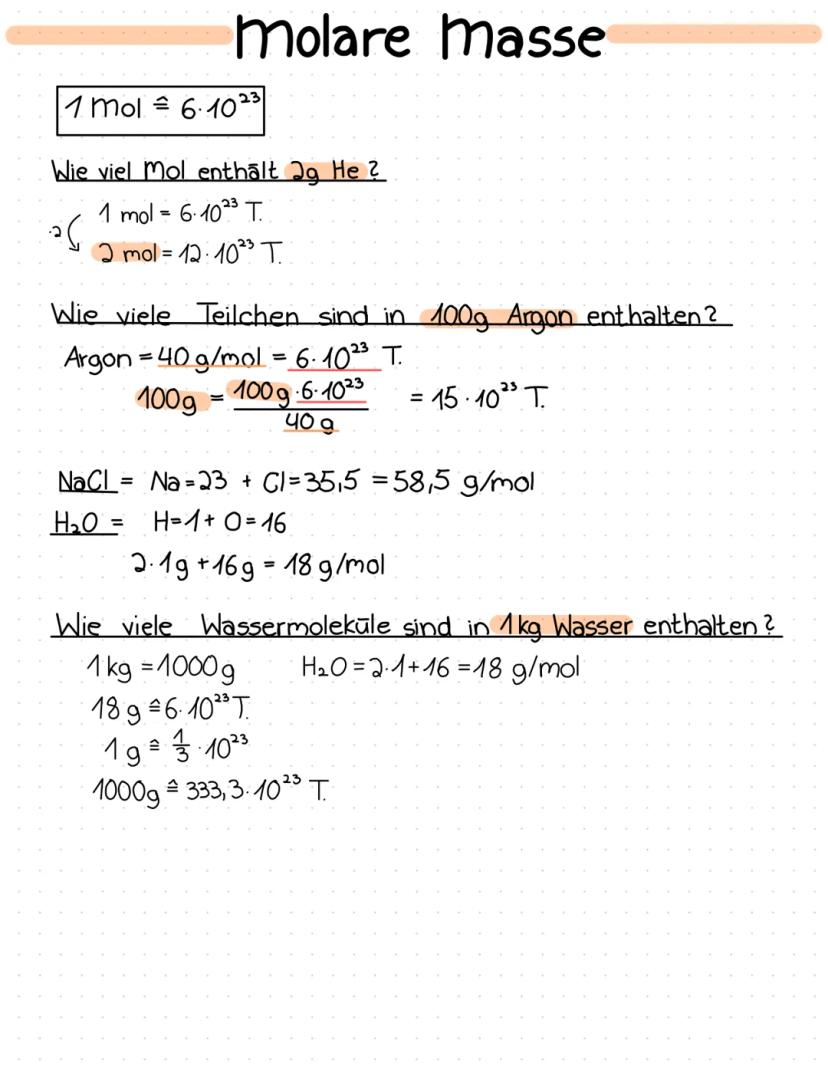 Molare Masse
1 Mol ≙ 6·10²³
Wie viel Mol enthält 2g He?
1 mol = 6·10²³ T.
·2
2 mol = 12·10²³ T.
Wie viele Teilchen sind in 100g Argon enthalten?
Argon = 40 g/mol = 6·10²³ T.
100g = 100g·6·10²³ / 40g = 15·10²³ T.
NaCl = Na=23 + Cl=35,5 = 58,5 g/mol
H₂O = H=1 + O=16
2·1g + 16g = 18 g/mol
Wie viele Wassermoleküle sind in 1kg Wasser enthalten?
1kg = 1000g H₂O = 2·1+16 = 18 g/mol
18 g ≙ 6·10²³ T.
1g ≙ 1/3 · 10²³
1000g ≙ 333,3·10²³ T.